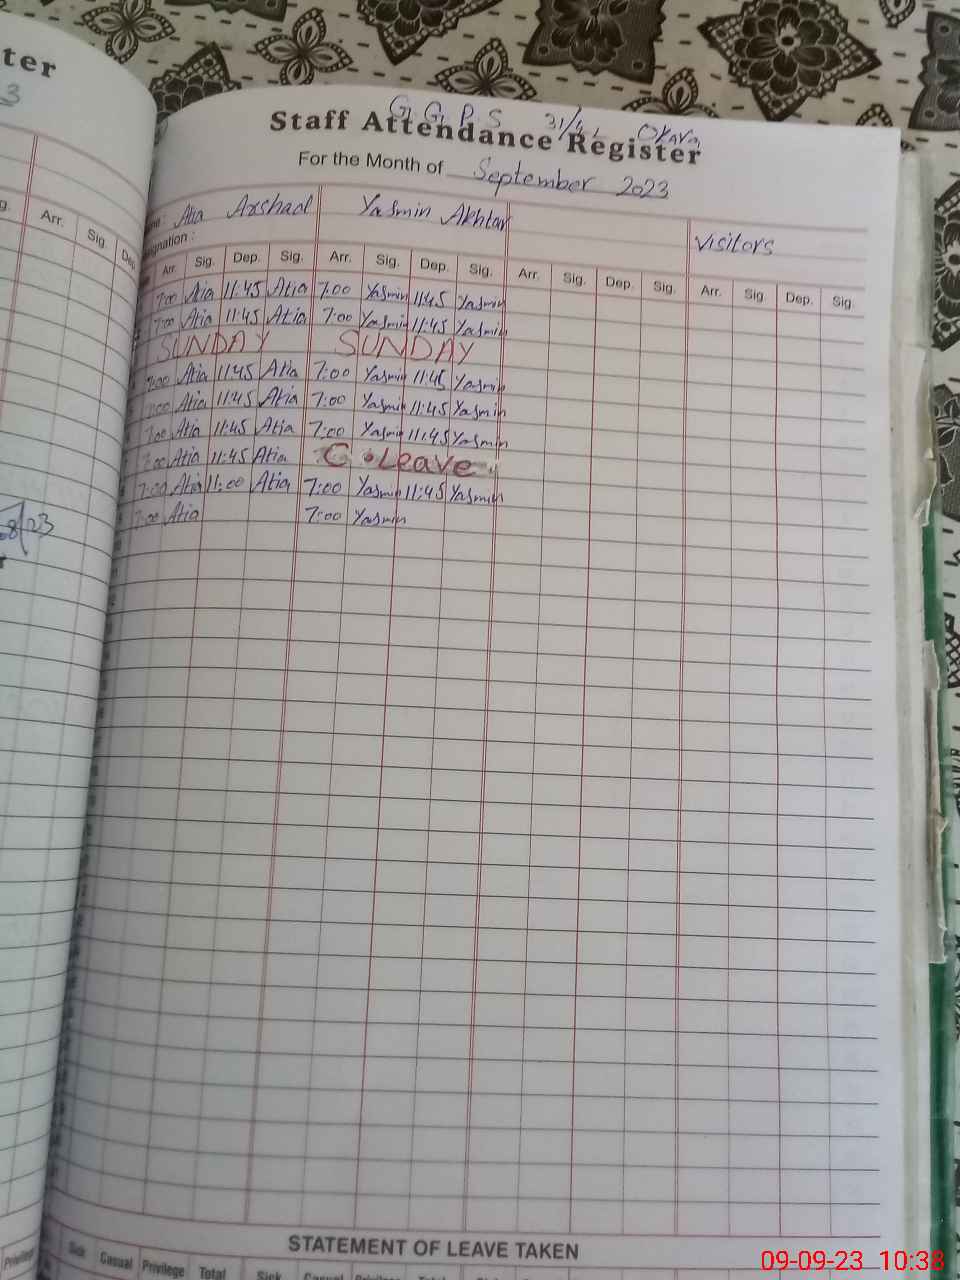 ter
3
G. G. P. S 31/4L Okara
Staff Attendance Register
For the Month of September 2023
Atia Arshad Yasmin Akhtar
Visitors
Arr. Sig. Dep. Sig. Arr. Sig. Dep. Sig. Arr. Sig. Dep. Sig. Arr. Sig Dep. Sig.
7:00 Atia 11:45 Atia 7:00 Yasmin 11:45 Yasmin
7:00 Atia 11:45 Atia 7:00 Yasmin 11:45 Yasmin
SUNDAY SUNDAY
7:00 Atia 11:45 Atia 7:00 Yasmin 11:45 Yasmin
7:00 Atia 11:45 Atia 7:00 Yasmin 11:45 Yasmin
7:00 Atia 11:45 Atia 7:00 Yasmin 11:45 Yasmin
7:00 Atia 11:45 Atia C. Leave
7:00 Atia 11:00 Atia 7:00 Yasmin 11:45 Yasmin
7:00 Atia 7:00 Yasmin
Arr. Sig.
STATEMENT OF LEAVE TAKEN
Sick Casual Privilege Total Sick Casual
09-09-23 10:38